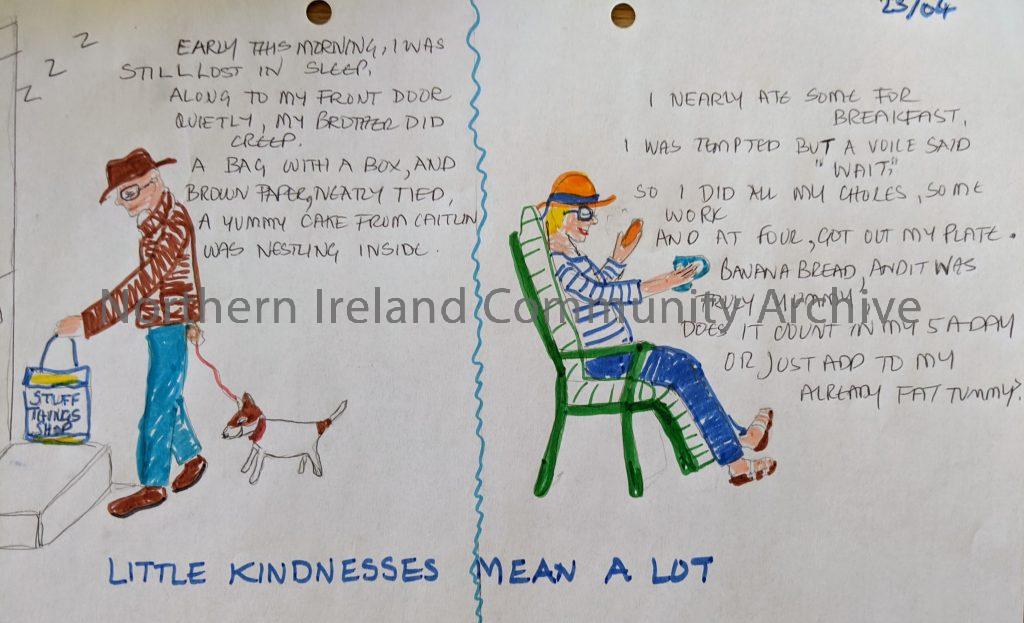 23/04
Z
Z
Z
EARLY THIS MORNING, I WAS
STILL LOST IN SLEEP.
ALONG TO MY FRONT DOOR
QUIETLY, MY BROTHER DID
CREEP.
A BAG WITH A BOX, AND
BROWN PAPER, NEATLY TIED,
A YUMMY CAKE FROM CAITLIN
WAS NESTLING INSIDE.
STUFF
THINGS
SHOP
I NEARLY ATE SOME FOR
BREAKFAST,
I WAS TEMPTED BUT A VOICE SAID
"WAIT;"
SO I DID ALL MY CHORES, SOME
WORK
AND AT FOUR, GOT OUT MY PLATE.
BANANA BREAD, AND IT WAS
TRULY
DOES IT COUNT IN MY 5 A DAY
OR JUST ADD TO MY
ALREADY FAT TUMMY?
Northern Ireland Community Archive
LITTLE KINDNESSES MEAN A LOT